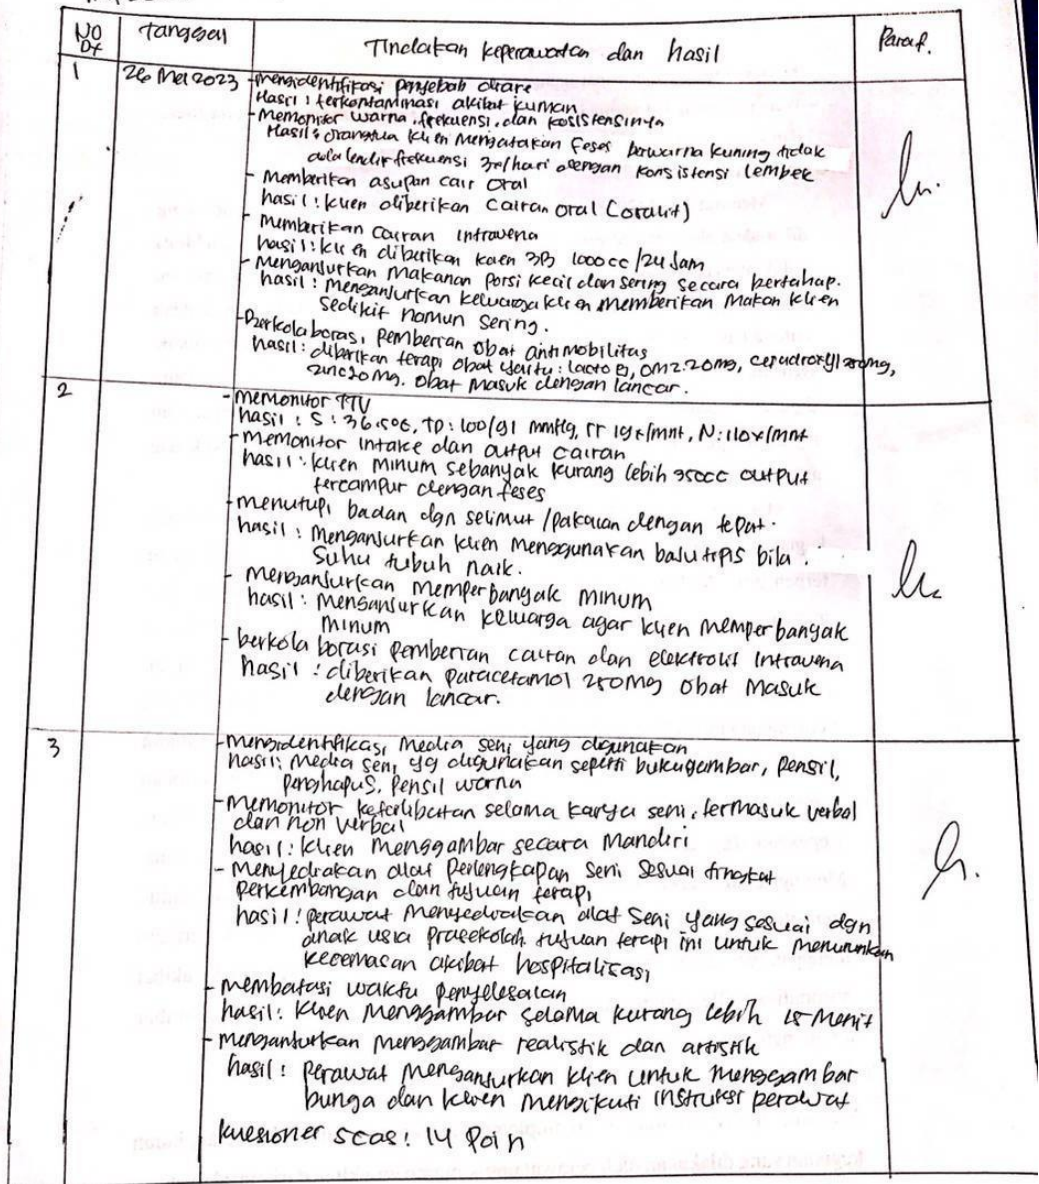 NO DX
Tanggal
Tindakan keperawatan dan hasil
Paraf.
1
26 Mei 2023
- Mengidentifikasi penyebab diare
Hasil : terkontaminasi akibat kuman
- Memonitor warna, frekuensi, dan kosistensinya
Hasil : Orangtua klien Mengatakan Feses berwarna kuning tidak
ada lendir frekuensi 3x/hari dengan konsistensi lembek
- Memberikan asupan cair oral
hasil : klien diberikan Cairan oral (oralit)
- Memberikan Cairan Intravena
hasil : klien diberikan kaen 3B 1000 cc /24 Jam
- Menganjurkan Makanan porsi kecil dan sering secara bertahap.
hasil : menganjurkan keluarga klien memberikan Makan klien
sedikit namun sering.
- Berkolaborasi pemberian obat antimobilitas
hasil : diberikan terapi obat yaitu : lacto B, OMZ 20mg,
zinc 20 mg. obat Masuk dengan lancar.
2
- memonitor TTV
hasil : S : 36.5°C, TD : 100/91 mmHg, rr 19x/mnt, N : 110x/mnt
- memonitor intake dan output cairan
hasil : klien minum sebanyak kurang lebih 350cc output
tercampur dengan feses
- menutupi badan dgn selimut /pakaian dengan tepat.
hasil : Menganjurkan klien Menggunakan baju tipis bila
suhu tubuh naik.
- menganjurkan Memperbanyak minum
hasil : menganjurkan keluarga agar klien memperbanyak
minum
- berkolaborasi pemberian cairan dan elektrolit intravena
hasil : diberikan paracetamol 250mg obat Masuk
dengan lancar.
3
- mengidentifikasi Media seni yang digunakan
hasil : Media seni yg digunakan seperti bukugambar, pensil,
penghapus, pensil warna
- Memonitor keterlibatan selama karya seni, termasuk verbal
dan non verbal
hasil : klien menggambar secara Mandiri
- Menyediakan alat Perlengkapan seni sesuai tingkat
perkembangan dan tujuan terapi
hasil : perawat Menyediakan alat seni yang sesuai dgn
anak usia prasekolah tujuan terapi ini untuk menurunkan
kecemasan akibat hospitalisasi
- membatasi waktu penyelesaian
hasil : klien Menggambar selama kurang lebih 15 Menit
- menganjurkan menggambar realistik dan artistik
hasil : perawat menganjurkan klien untuk menggambar
bunga dan klien mengikuti instruksi perawat
kuesioner scas : 14 Poin